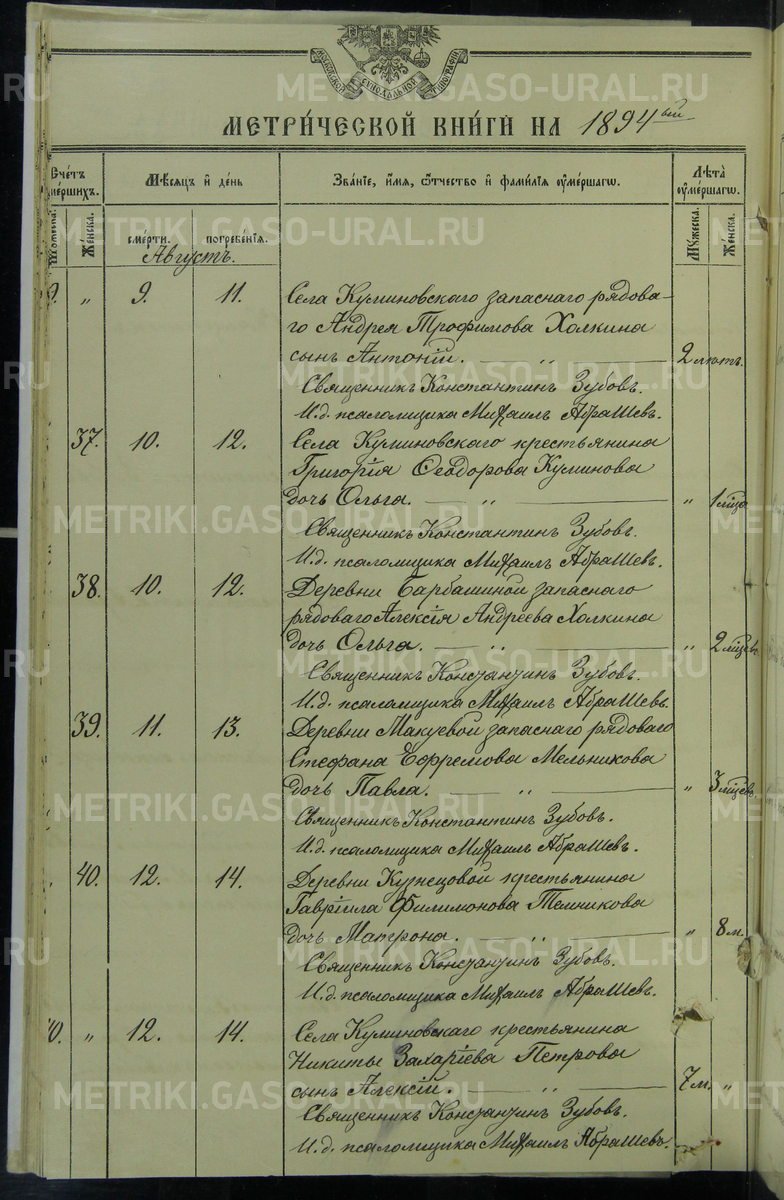 МОСКОВСКОЙ СѴНОДАЛЬНОЙ ТИПОГРАФІИ
МЕТРИ́ЧЕСКОЙ КНИ́ГИ НА 1894ый
Счетъ умершихъ. Мѣсяцъ и день Званіе, имя, ѻтчество и фамилія оумершагѡ. Лѣта оумершагѡ.
Женска. смерти. погребенія. Мужеска. Женска.
Августъ.
9. „ 9. 11. Села Куминовскаго запаснаго рядова-
го Андрея Трофимова Холкина
сынъ Антоній. — „ — 2 лѣтъ.
Священникъ Константинъ Зубовъ.
И.д. псаломщика Михаилъ Абрашевъ.
37. 10. 12. Села Куминовскаго крестьянина
Григорія Ѳеодорова Куминова
дочь Ольга. — „ — „ 1 мѣца
Священникъ Константинъ Зубовъ.
И.д. псаломщика Михаилъ Абрашевъ.
38. 10. 12. Деревни Барбашиной запаснаго
рядоваго Алексія Андреева Холкина
дочь Ольга. — „ — „ 2 мѣцев.
Священникъ Константинъ Зубовъ.
И.д. псаломщика Михаилъ Абрашевъ.
39. 11. 13. Деревни Макуевой запаснаго рядоваго
Стефана Ефремова Мельникова
дочь Павла. — „ — „ 3 мѣцев.
Священникъ Константинъ Зубовъ.
И.д. псаломщика Михаилъ Абрашевъ.
40. 12. 14. Деревни Кузнецовой крестьянина
Гавріила Филимонова Темникова
дочь Матрона. — „ — „ 8 м.
Священникъ Константинъ Зубовъ.
И.д. псаломщика Михаилъ Абрашевъ.
0. „ 12. 14. Села Куминовскаго крестьянина
Никиты Захаріева Петрова
сынъ Алексій. — „ — 7 м. „
Священникъ Константинъ Зубовъ.
И.д. псаломщика Михаилъ Абрашевъ.
METRIKI.GASO-URAL.RU